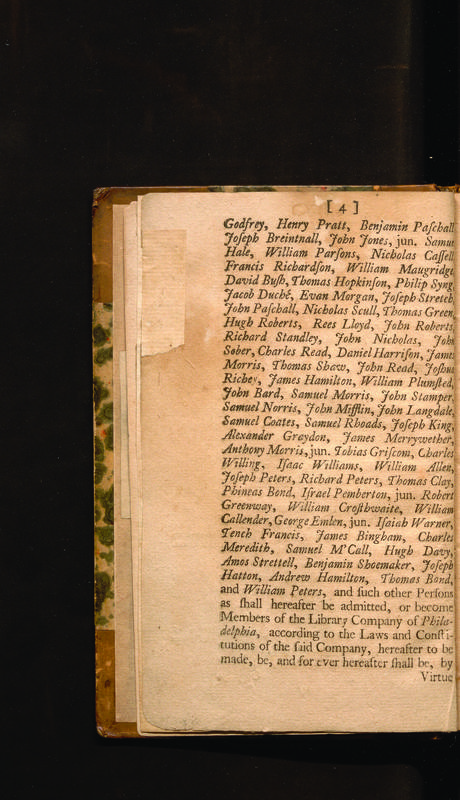 [ 4 ]
Godfrey, Henry Pratt, Benjamin Paſchall
Joſeph Breintnall, John Jones, jun. Samu
Hale, William Parſons, Nicholas Caſſell
Francis Richardſon, William Maugridge
David Buſh, Thomas Hopkinſon, Philip Syng
Jacob Duché, Evan Morgan, Joſeph Stretch
John Paſchall, Nicholas Scull, Thomas Green
Hugh Roberts, Rees Lloyd, John Roberts,
Richard Standley, John Nicholas, John
Sober, Charles Read, Daniel Harriſon, James
Morris, Thomas Shaw, John Read, Joſhua
Richey, James Hamilton, William Plumſted,
John Bard, Samuel Morris, John Stamper,
Samuel Norris, John Mifflin, John Langdale,
Samuel Coates, Samuel Rhoads, Joſeph King,
Alexander Graydon, James Merrywether,
Anthony Morris, jun. Tobias Griſcom, Charles
Willing, Iſaac Williams, William Allen,
Joſeph Peters, Richard Peters, Thomas Clay,
Phineas Bond, Iſrael Pemberton, jun. Robert
Greenway, William Croſthwaite, William
Callender, George Emlen, jun. Iſaiah Warner,
Tench Francis, James Bingham, Charles
Meredith, Samuel M'Call, Hugh Davy,
Amos Strettell, Benjamin Shoemaker, Joſeph
Hatton, Andrew Hamilton, Thomas Bond,
and William Peters, and ſuch other Perſons
as ſhall hereafter be admitted, or become
Members of the Library Company of Phila-
delphia, according to the Laws and Conſti-
tutions of the ſaid Company, hereafter to be
made, be, and for ever hereafter ſhall be, by
Virtue